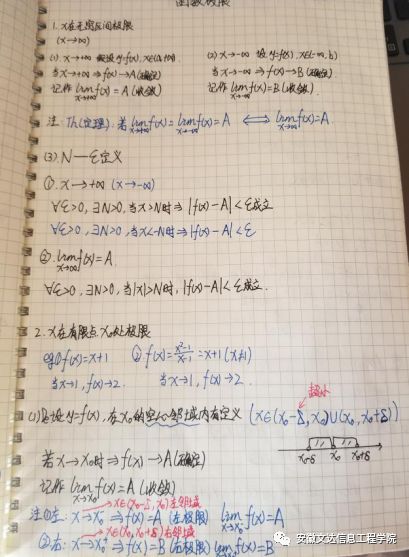 函数极限
1. x在无穷区间极限
(x→∞)
(1). x→+∞ 设y=f(x), x∈(a,+∞)
当x→+∞ ⇒ f(x)→A(确定)
记作 lim_{x→+∞} f(x) = A (收敛)
(2) x→-∞ 设y=f(x), x∈(-∞,b)
当x→-∞ ⇒ f(x)→B(确定)
记作 lim_{x→-∞} f(x)=B(收敛)
注: Th(定理): 若 lim_{x→+∞} f(x) = lim_{x→-∞} f(x) = A ⟺ lim_{x→∞} f(x) = A
(3). N—ε定义
①. x→+∞ (x→-∞)
∀ε>0, ∃N>0, 当x>N时⇒ |f(x)-A|<ε成立
∀ε>0, ∃N>0, 当x<-N时⇒ |f(x)-A|<ε
②. lim_{x→∞} f(x)=A
∀ε>0, ∃N>0, 当|x|>N时, |f(x)-A|<ε成立.
2. x在有限点x₀处极限
eg① f(x)=x+1 ② f(x)= (x²-1)/(x-1) = x+1 (x≠1)
当x→1, f(x)→2. 当x→1, f(x)→2.
超小
(1) 设y=f(x), 在x₀的空心邻域内有定义 (x∈(x₀-δ, x₀)∪(x₀, x₀+δ))
x₀-δ x₀ x₀+δ
若x→x₀时⇒ f(x)→A(确定)
记作 lim_{x→x₀} f(x)=A (收敛)
x∈(x₀-δ, x₀)左邻域
注①左: x→x₀⁻ ⇒ f(x)=A (左极限) lim_{x→x₀⁻} f(x)=A
x∈(x₀, x₀+δ)右邻域
②右: x→x₀⁺ ⇒ f(x)=B (右极限) lim_{x→x₀⁺} f(x)=B
安徽文达信息工程学院